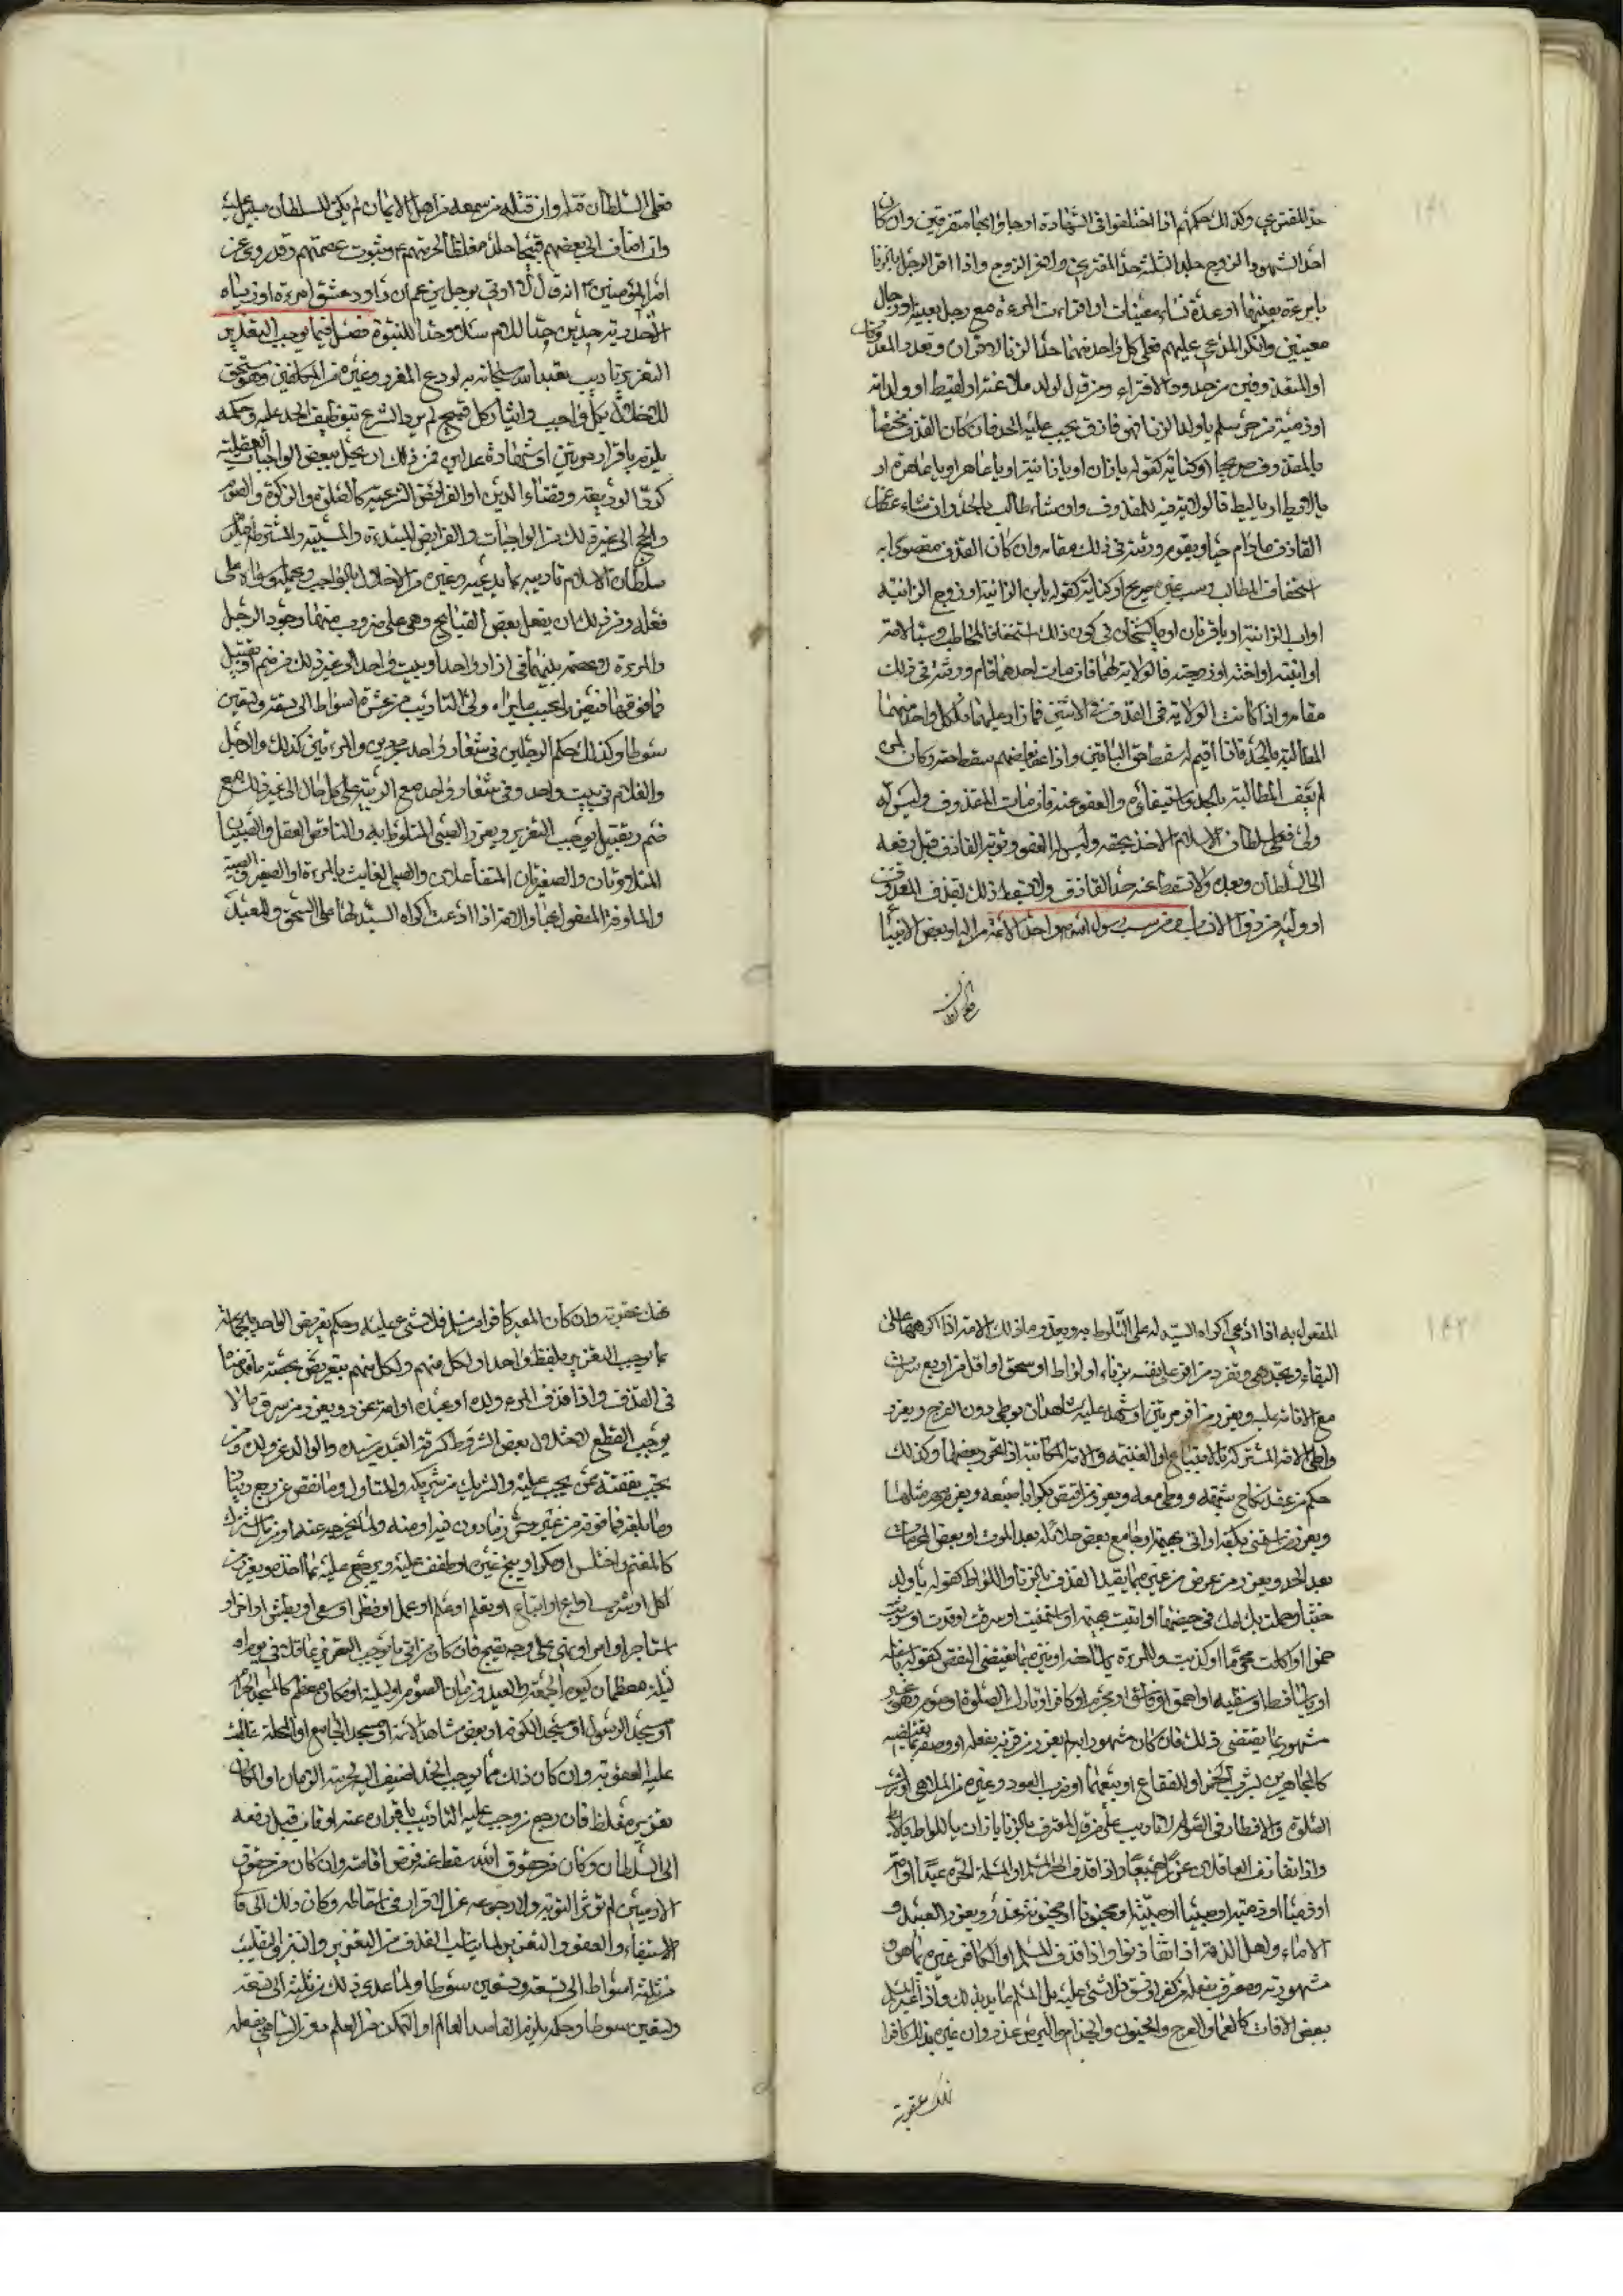 حد المفتري وكذلك حكمهم اذا اختلفوا في الشهادة او جاؤا بها متفرقين وان كان
احد الشهود الزوج جلد الثلثة حد المفتري ولاعن الزوج واذا اقر الرجل بالزنا
بامرءة بعينها او عدة نساء معينات او اقرءت المرءة مع رجل بعينه او رجال
معينين وانكر المدعى عليهم فعلى كل واحد منهما حد الزنا لاقران وتعدد المقذوفات
او المقذوفين من حدود الافتراء ومن قال لولد ملاعنة او لقيط او ولد امة
او ذمية من حر مسلم يا ولد الزنا فهو قاذف يجب عليه الحد فان كان القذف مختصا
بالمقذوف صريحا او كناية كقوله يا زان او يا زانية او يا عاهر او يا عاهرة او
يا لايط او يا ليط فالولاية فيه للمقذوف وان شاء طالب بالحد وان شاء عفا عن
القاذف ما دام حيا ويقوم ورثته في ذلك مقامه وان كان القذف مقصودا به
استخفاف المطالب وسب غيره صريح او كناية كقوله يابن الزانية او زوج الزانية
او اب الزانية او يا قرنان او يا كشخان في كون ذلك استخفافا للمخاطب وسبا لامه
او ابنته او اخته او زوجته فالولاية لهما فان مات احدهما قام ورثته في ذلك
مقامه واذا كانت الولاية في القذف في الاثنين فما زاد عليهما فلكل واحد منهما
المطالبة بالحد فاذا اقيم له سقط حق الباقين واذا عفا بعضهم سقط حقه وكان لمن
لم يعف المطالبة بالحد واستيفاؤه والعفو عنه فان مات المقذوف وليس له
ولي فعلى سلطان الاسلام الاخذ بحقه وليس له العفو وتوبة القاذف قبل رفعه
الى السلطان وبعده لا تسقط عنه حد القاذف ولا تسقط ذلك بقذف المقذوف
او وليه من ذوي الانساب ومن سب رسول الله ص او احد الائمة من اله او بعض الانبياء
فعلى السلطان
فعلى السلطان قتله وان قتله من سمعه من اهل الايمان لم يكن للسلطان سبيل عليه
وان اضاف الى بعضهم قبيحا جلد مغلظا لحرمتهم ع وثبوت عصمتهم وقد روي عن
امير المؤمنين ع انه قال لا اوتي برجل يزعم ان داود عشق امرءة اوريا
الا جلدته حدين حدا للاسلام وحدا للنبوة فصل فيما يوجب التعزير
التعزير تاديب تعبد الله سبحانه به لردع المعزر وغيره من المكلفين وهو مستحق
للاخلال بكل واجب وايثار كل قبيح لم يرد الشرع بتوظيف الحد عليه وحكمه
يلزم باقرار مرتين او شهادة عدلين فمن ذلك ان يخل ببعض الواجبات العقلية
كرد الوديعة وقضاء الدين او الفرائض الشرعية كالصلوة والزكوة والصوم
والحج الى غير ذلك من الواجبات والفرايض المبتدءة والمسببة والمشترطة فيلزم
سلطان الاسلام تاديبه بما يردعه وغيره من الاخلال بالواجب ويحمله وسواه على
فعله ومن ذلك ان يفعل بعض القبايح وهي على ضروب منها وجود الرجل
والمرءة لا عصمة بينهما في ازار واحد او بيت واحد الى غير ذلك من ضم او تقبيل
فما فوقهما فيعزر بحسب ما يراه ولي التاديب من عشرة اسواط الى تسعة وتسعين
سوطا وكذلك حكم الرجلين في شعار واحد مجردين والمرءتين كذلك والرجل
والغلام في بيت واحد وفي شعار واحد مع الريبة على كل حال الى غير ذلك مع
ضم وتقبيل يوجب التعزير ويعزر الصبي المتلوط به والناقص العقل والصبيان
المتلاوطان والصغيرتان المتفاعلتان والصبي العابث بالمرءة او الصغير والصبية
والمأوفة المفعول بها والامة اذا ادعت اكراه السيدة لها على السحق والعبد
المفعول به اذا ادعى اكراه السيد له على التلوط به ويعزر وما ذلك الامة اذا اكرهها على
البغاء ويحد هي ويعزر من اقر على نفسه بزناء او لواط او سحق اقل من اربع مرات
مع الاقامة عليه ويعزر من اقر مرتين او شهد عليه شاهدان بوطي دون الفرج ويعزر
واطي الامة المشتركة بالابتياع او الغنيمة والامة المكاتبة اذا تحرر بعضها وكذلك
حكم من عقد نكاح شبهة ووطي معه ويعزر من افتض بكرا باصبعه ويغرم مهر مثلها
ويعزر من استمنى بكفه او اتى بهيمة او جامع بعض حلائله بعد الموت او بعض المحرمات
بعد الحد ويعزر من عرض من غيره بما يفيد القذف بالزنا واللواط كقوله يا ولد
خبث او حملت بك امك في حيضها او اتيت بهيمة او استمنيت او سرقت او قدت او شربت
خمرا او اكلت محرما او كذبت وللمرءة يا ساحرة او نبز بما يقتضي النقص كقوله يا سفلة
او يا ساقط او سفيه او احمق او فاسق او مجرم او كافر او تارك الصلوة او صوم وهو غير
مشهور بما يقتضي ذلك فان كان مشهورا به لم يعزر من قرنه بفعله او وصفه بمقتضاه
كالمجاهرين بشرب الخمر او الفقاع او بيعهما او ضرب العود وغيره من الملاهي او ترك
الصلوة والافطار في الصوم ولا تاديب على من قال لمعترف بالزنا يا زان او باللواط يا لائط
واذا تقاذف العاقلان عزرا جميعا واذا قذف الحر المسلم او المسلمة الحرة عبدا او امة
او ذميا او ذمية او صبيا او صبية او مجنونا او مجنونة عزر ويعزر العبيد و
الاماء واهل الذمة اذا تقاذفوا واذا قذف المسلم او الكافر غيره بما هو
مشهور به ومعترف بفعله من كفر او فسق فلا شيء عليه بل المسلم مثاب بذلك واذا عير المسلم
ببعض الافات كالعما والعرج والجنون والجذام والبرص عزر وان غيره بذلك كافرا
نكلت عقوبته
نكلت عقوبته وان كان المعير كافرا مثله فلا شيء عليه وحكم تعريض الواحد بالجماعة
بما يوجب التعزير بلفظ واحد او لكل منهم ولكل منهم بتعريض يخصه ما قدمنا
في القذف واذا قذف المرء ولده او عبده او امته عزر ويعزر من سرق ما لا
يوجب القطع لاختلال بعض الشروط كسرقة العبد من سيده والوالد من ولده ومن
يجب نفقته عمن يجب عليه والشريك من شريكه والمتاول وما نقص عن ربع دينار
وما بلغه فما فوقه من غير حرز وما دون فيه او منه ولما يخرجه عنه
كالمغتنم او اختلس او مكر او بنج غيره او طفف عليه ويرجع عليه بما اخذه ويعزر من
اكل او شرب او باع او ابتاع او تعلم او علم او عمل او نظر او سعى او بطش او اجر او
استاجر او امر او نهى على وجه قبيح فان كان من اتى ما يوجب التعزير عاقلا في يوم او
ليلة معظمان كيوم الجمعة والعيد وزمان الصوم او ليلة او مكان معظم كالمسجد الحرام
او مسجد الرسول او مسجد الكوفة او بعض مشاهد الائمة او مسجد الجامع او المحلة غلظت
عليه العقوبة وان كان ذلك مما يوجب الحد اضيف اليه لحرمة الزمان او المكان
تعزير مغلظ فان رجع من وجب عليه التاديب باقراره عنه او تاب قبل رفعه
الى السلطان وكان من حقوق الله سقط عنه فرض اقامته وان كان من حقوق
الادميين لم تؤثر التوبة ولا رجوعه عن الاقرار في اسقاطه وكان ذلك الى
الاستيفاء والعفو والتعزير لما يناسب القذف من التعريض والنبز والتلقيب
من ثلثة اسواط الى تسعة وسبعين سوطا ولما عدى ذلك من ثلثة الى تسعة
وتسعين سوطا وحكمه يلزم القاصد العالم او المتمكن من العلم دون الساهي بفعله